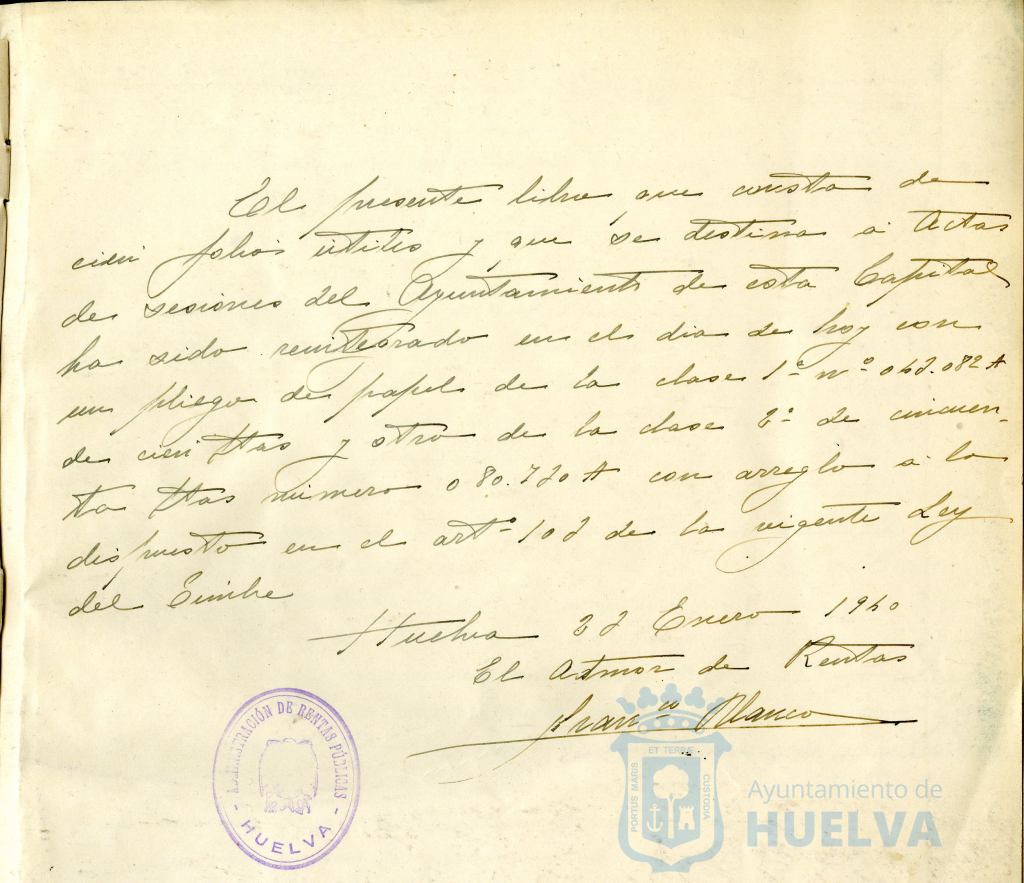 El presente libro que consta de
cien folios útiles y que se destina a Actas
de sesiones del Ayuntamiento de esta Capital
ha sido reintegrado en el dia de hoy con
un pliego de papel de la clase 1ª nº 082 A
de cien Ptas y otro de la clase 2ª de cincuen-
ta Ptas número 080.720 A con arreglo a lo
dispuesto en el artº de la vigente Ley
del Timbre
Huelva Enero 1940
El Admor de Rentas
Franco Blanco
ADMINISTRACIÓN DE RENTAS PÚBLICAS
- HUELVA -
PORTUS MARIS
ET TERRE
CUSTODIA
Ayuntamiento de
HUELVA